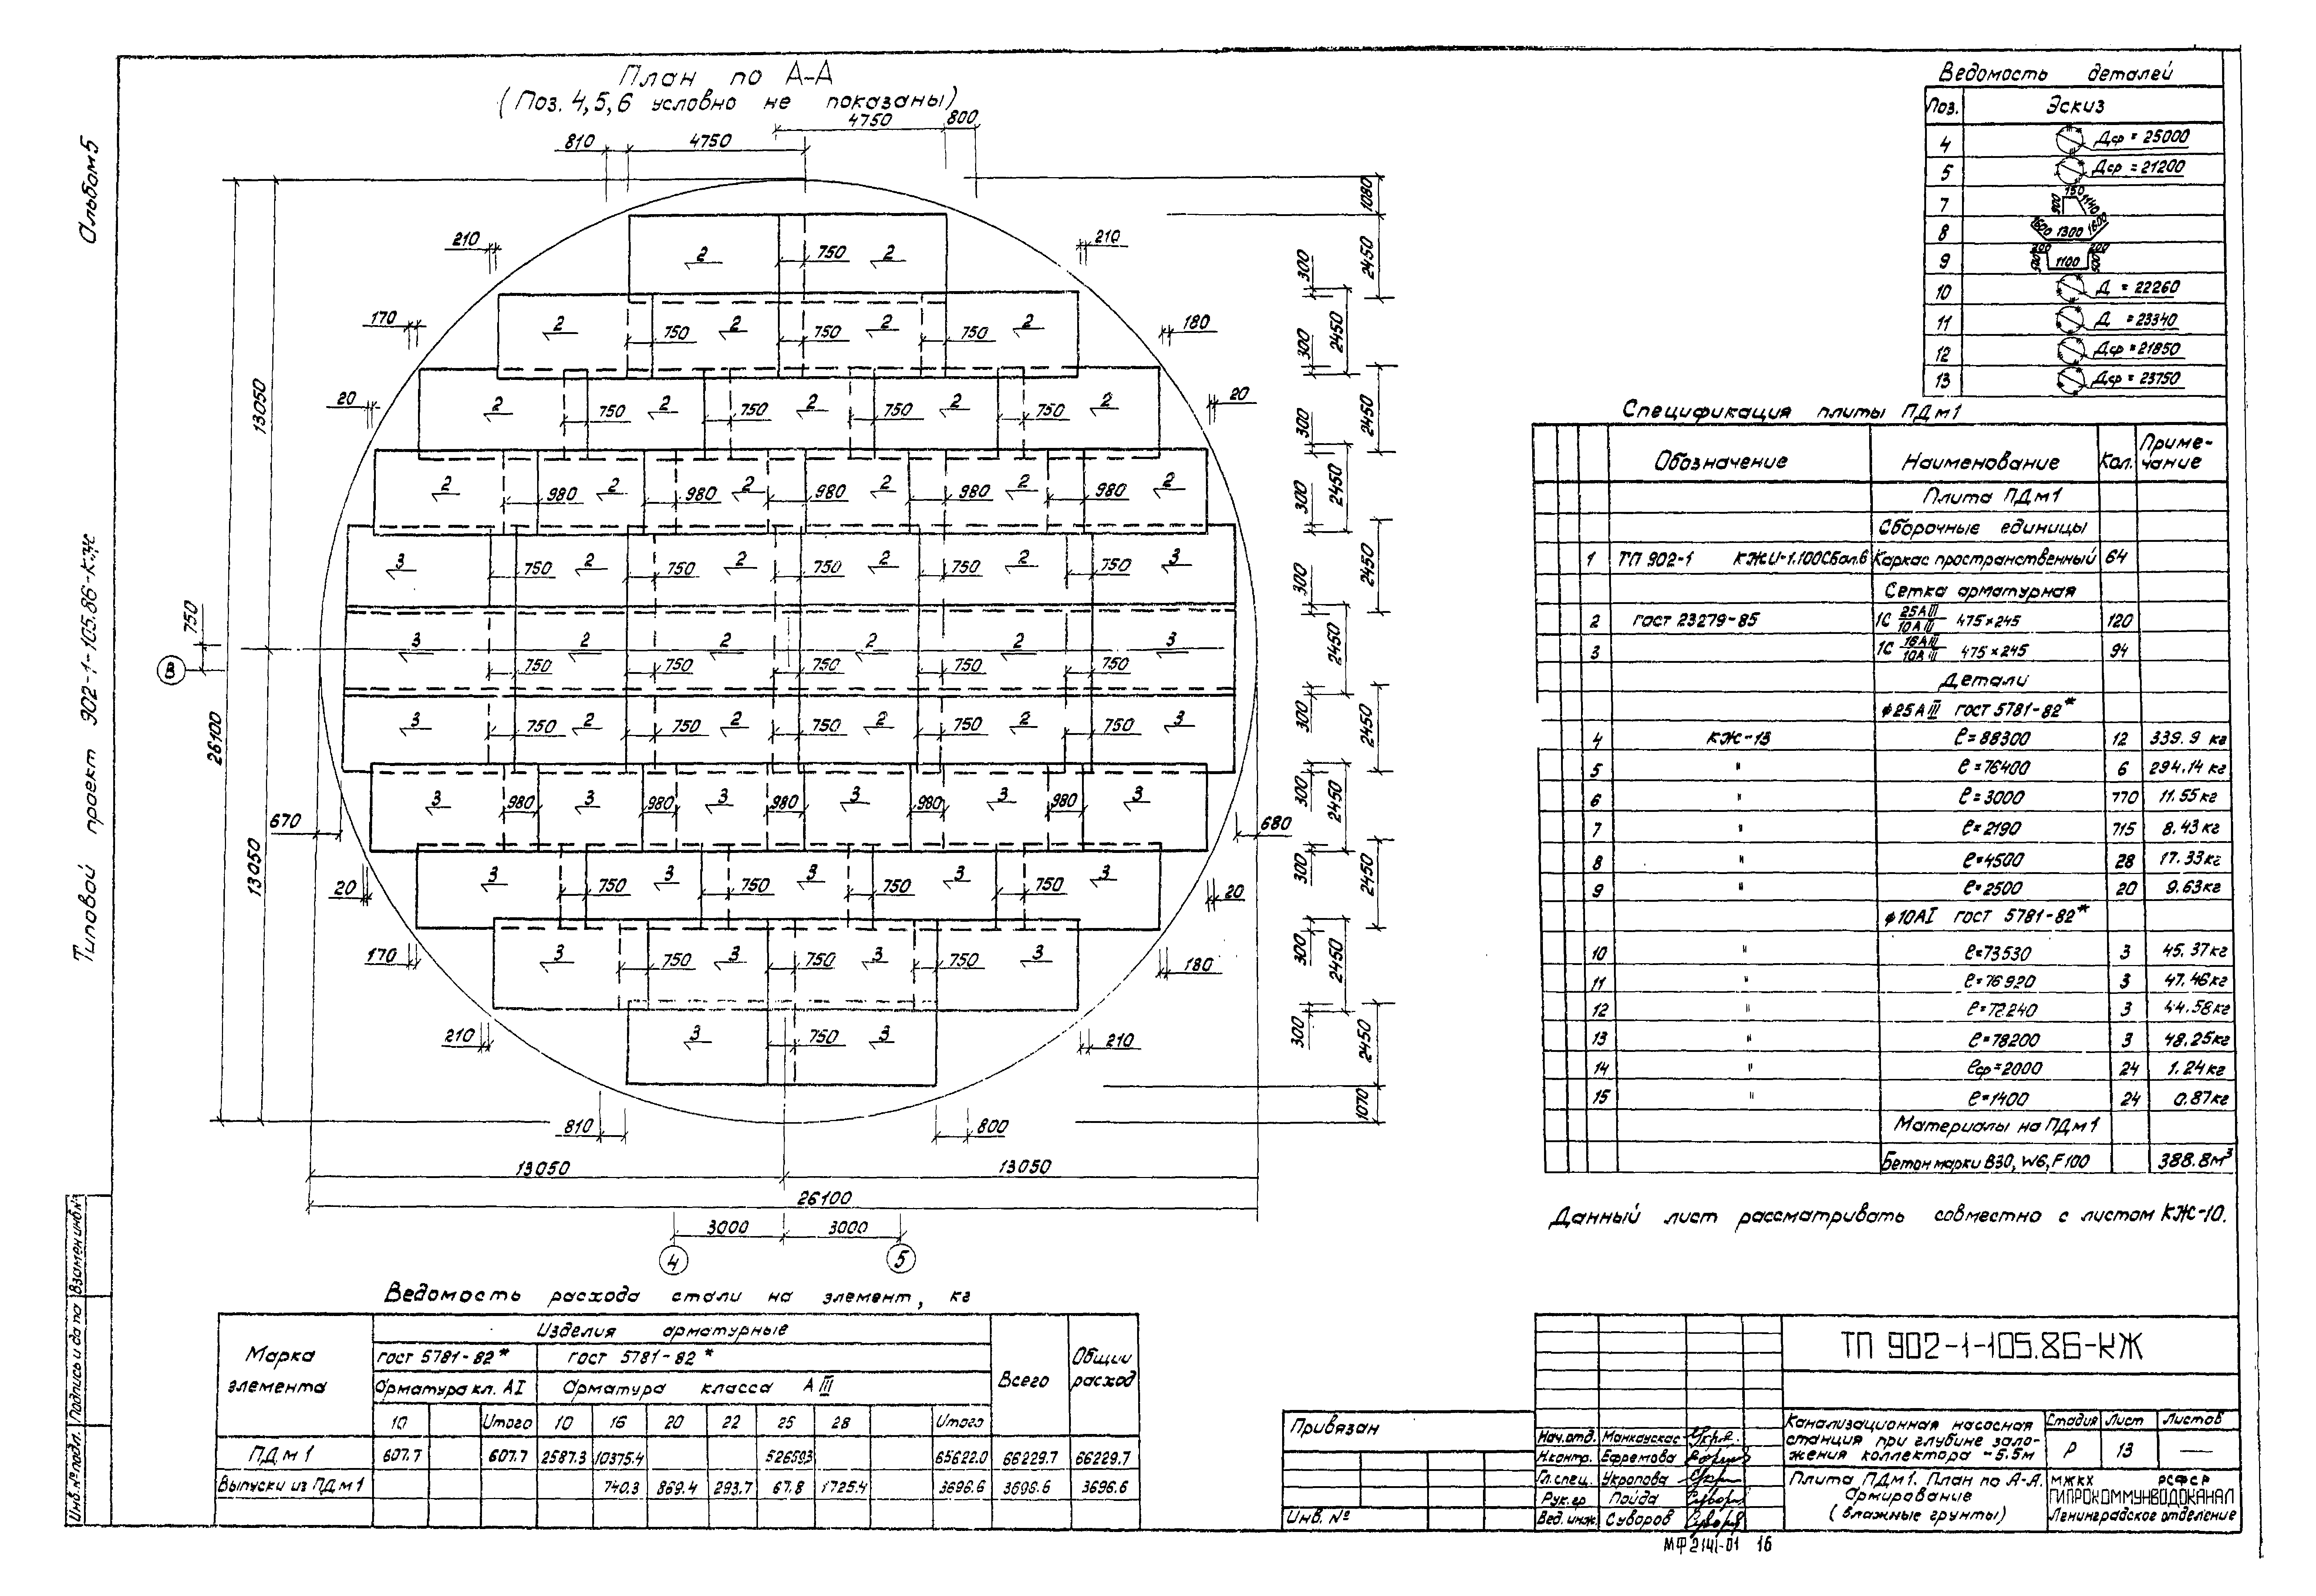 План по А-А
(Поз. 4, 5, 6 условно не показаны)
Альбом 5
Типовой проект 902-1-105.86-КЖ
810 4750 4750 800
210 210
170 180
20 20
13050
26100
750
В
13050
670 680
20 20
170 180
210 210
810 800
1080
2450
300
1070
2 750 2
2 750 2 750 2 750 2
2 750 2 750 2 750 2 750 2
2 980 2 980 2 980 2 980 2 980 2
3 750 2 750 2 750 2 750 2 750 3
3 750 2 750 2 750 2 750 2 750 3
3 750 2 750 2 750 2 750 2 750 3
3 980 3 980 3 980 3 980 3 980 3
3 750 3 750 3 750 3 750 3
3 750 3 750 3 750 3
3 750 3
13050 13050
26100
3000 3000
4 5
Ведомость деталей
Поз. Эскиз
4 Дср = 25000
5 Дср = 21200
7 900 150 1140
8 1600 1300 1600
9 200 500 1100 500 200
10 Д = 22260
11 Д = 23340
12 Дср = 21850
13 Дср = 23750
Спецификация плиты ПДм1
Обозначение Наименование Кол. Примечание
Плита ПДм1
Сборочные единицы
1 ТП 902-1 КЖИ-1.100СБ ал.6 Каркас пространственный 64
Сетка арматурная
2 ГОСТ 23279-85 1С 25АIII/10АIII 475×245 120
3 1С 16АIII/10АIII 475×245 94
Детали
ϕ25АIII ГОСТ 5781-82*
4 КЖ-13 ℓ=88300 12 339.9 кг
5 " ℓ=76400 6 294.14 кг
6 " ℓ=3000 770 11.55 кг
7 " ℓ=2190 715 8.43 кг
8 " ℓ=4500 28 17.33 кг
9 " ℓ=2500 20 9.63 кг
ϕ10АI ГОСТ 5781-82*
10 " ℓ=73530 3 45.37 кг
11 " ℓ=76920 3 47.46 кг
12 " ℓ=72240 3 44.58 кг
13 " ℓ=78200 3 48.25 кг
14 " ℓср=2000 24 1.24 кг
15 " ℓ=1400 24 0.87 кг
Материалы на ПДм1
Бетон марки В30, W6, F100 388.8 м³
Данный лист рассматривать совместно с листом КЖ-10.
Ведомость расхода стали на элемент, кг
Марка элемента Изделия арматурные Всего Общий расход
ГОСТ 5781-82* ГОСТ 5781-82*
Арматура кл. АI Арматура класса АIII
10 Итого 10 16 20 22 25 28 Итого
ПДм1 607.7 607.7 2587.3 10375.4 52659.3 65622.0 66229.7 66229.7
Выпуски из ПДм1 740.3 869.4 293.7 67.8 1725.4 3696.6 3696.6 3696.6
Привязан
Инв. №
ТП 902-1-105.86-КЖ
Нач.отд. Манкаускас
Н.контр. Ефремова
Гл.спец. Укропова
Рук.гр Пойда
Вед.инж. Суворов
Канализационная насосная
станция при глубине зало-
жения коллектора -5.5м
Стадия Лист Листов
Р 13 —
Плита ПДм1. План по А-А.
Армирование
(влажные грунты)
МЖКХ РСФСР
ГИПРОКОММУНВОДОКАНАЛ
Ленинградское отделение
МФ2141-01 16
Инв.№подл. Подпись и дата Взамен инв.№